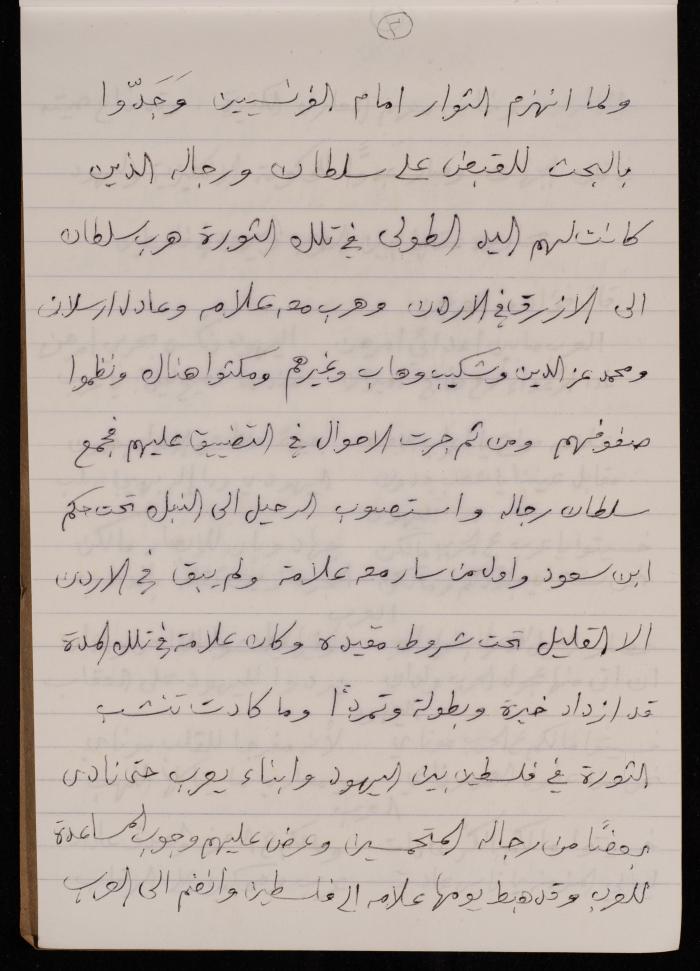 ٣
ولما انهزم الثوار امام الفرنسيين وَجَدّوا
بالبحث للقبض على سلطان ورجاله الذين
كانت لهم اليد الطولى في تلك الثورة هرب سلطان
الى الازرق في الاردن وهرب معه علامه وعادل ارسلان
ومحمد عز الدين وشكيب وهاب وغيرهم ومكثوا هناك ونظموا
صفوفهم ومن ثم جرت الاحوال في التضييق عليهم فجمع
سلطان رجاله واستصوب الرحيل الى النبك تحت حكم
ابن سعود واول من سار معه علامة ولم يبق في الاردن
الا القليل تحت شروط مقيده وكان علامة في تلك المدة
قد ازداد خبرة وبطولة وتمردًا وما كادت تنشب
الثورة في فلسطين بين اليهود وابناء يعرب حتى نادى
بعضًا من رجاله المتحمسين وعرض عليهم وجوب المساعدة
للعرب وقد هبط يومها علامه الى فلسطين وانضم الى العرب